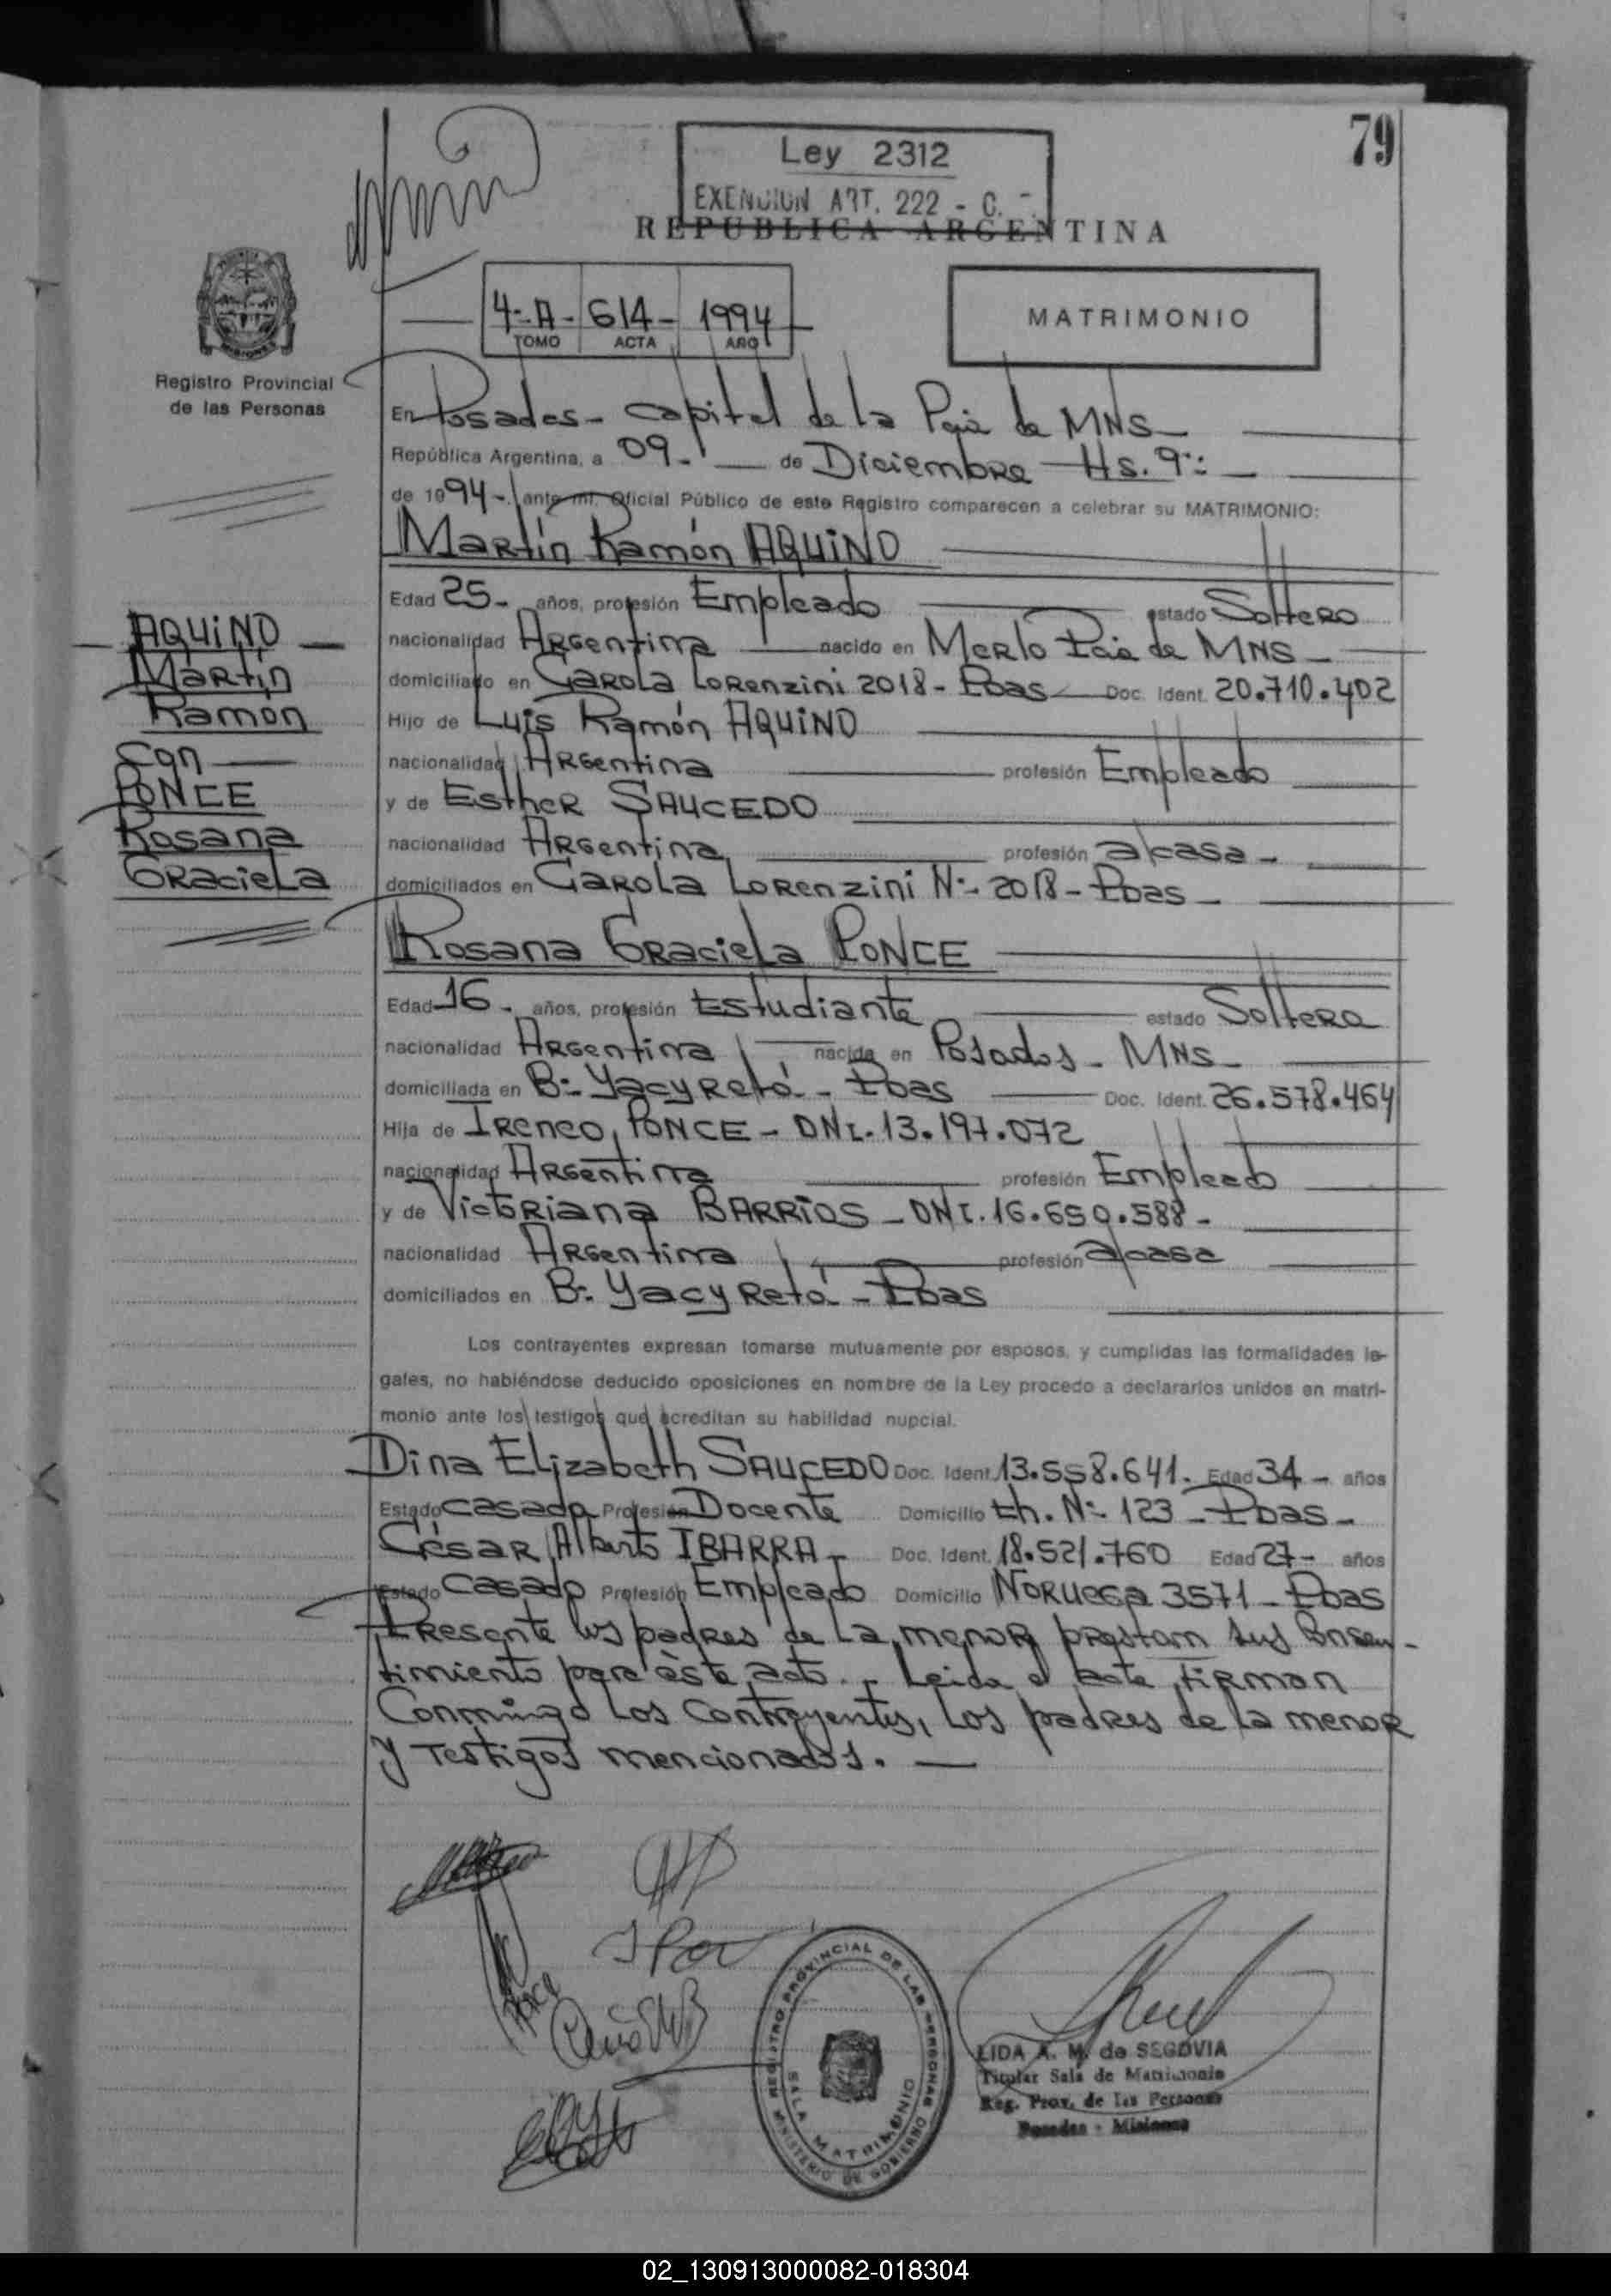 79
Ley 2312
EXENCION ART. 222 - C.
REPUBLICA ARGENTINA
4-A - 614 - 1994
TOMO ACTA AÑO
MATRIMONIO
Registro Provincial
de las Personas
En Posadas - Capital de la Pcia de MNS
República Argentina, a 09 - de Diciembre Hs. 9
de 1994 - ante mí, Oficial Público de este Registro comparecen a celebrar su MATRIMONIO:
Martín Ramón AQUINO
Edad 25 - años, profesión Empleado estado Soltero
nacionalidad Argentina nacido en Merlo Pcia de MNS -
domiciliado en Carola Lorenzini 2018 - Pdas Doc. Ident. 20.710.402
Hijo de Luis Ramón AQUINO
nacionalidad Argentina profesión Empleado
y de Esther SAUCEDO
nacionalidad Argentina profesión a/casa -
domiciliados en Carola Lorenzini Nº 2018 - Pdas -
AQUINO
Martín
Ramón
Con
PONCE
Rosana
Graciela
Rosana Graciela PONCE
Edad 16 - años, profesión Estudiante estado Soltera
nacionalidad Argentina nacida en Posadas - MNS -
domiciliada en Bº Yacyretá - Pdas Doc. Ident. 26.578.464
Hija de Ireneo PONCE - DNI. 13.197.072
nacionalidad Argentina profesión Empleado
y de Victoriana BARRIOS - DNI. 16.650.588 -
nacionalidad Argentina profesión a/casa
domiciliados en Bº Yacyretá - Pdas
Los contrayentes expresan tomarse mutuamente por esposos, y cumplidas las formalidades le-
gales, no habiéndose deducido oposiciones en nombre de la Ley procedo a declararlos unidos en matri-
monio ante los testigos que acreditan su habilidad nupcial.
Dina Elizabeth SAUCEDO Doc. Ident. 13.558.641. Edad 34 - años
Estado Casada Profesión Docente Domicilio Ch. Nº 123 - Pdas -
César Alberto IBARRA - Doc. Ident. 18.521.760 Edad 27 - años
Estado Casado Profesión Empleado Domicilio Noruega 3571 - Pdas
Presente los padres de la menor prestam sus Consen-
timiento para éste acto. - Leida el acta firman
Conmingo los Contrayentes, los padres de la menor
y Testigos mencionados. -
REGISTRO PROVINCIAL DE LAS PERSONAS
SALA MATRIMONIO
MINISTERIO DE GOBIERNO
LIDA A. M. de SEGOVIA
Titular Sala de Matrimonio
Reg. Prov. de las Personas
Posadas - Misiones
02_130913000082-018304